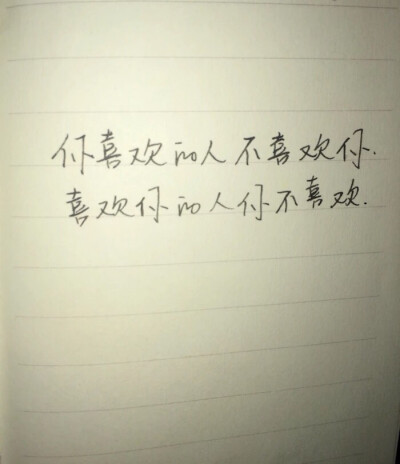 你喜欢的人不喜欢你.
喜欢你的人你不喜欢.